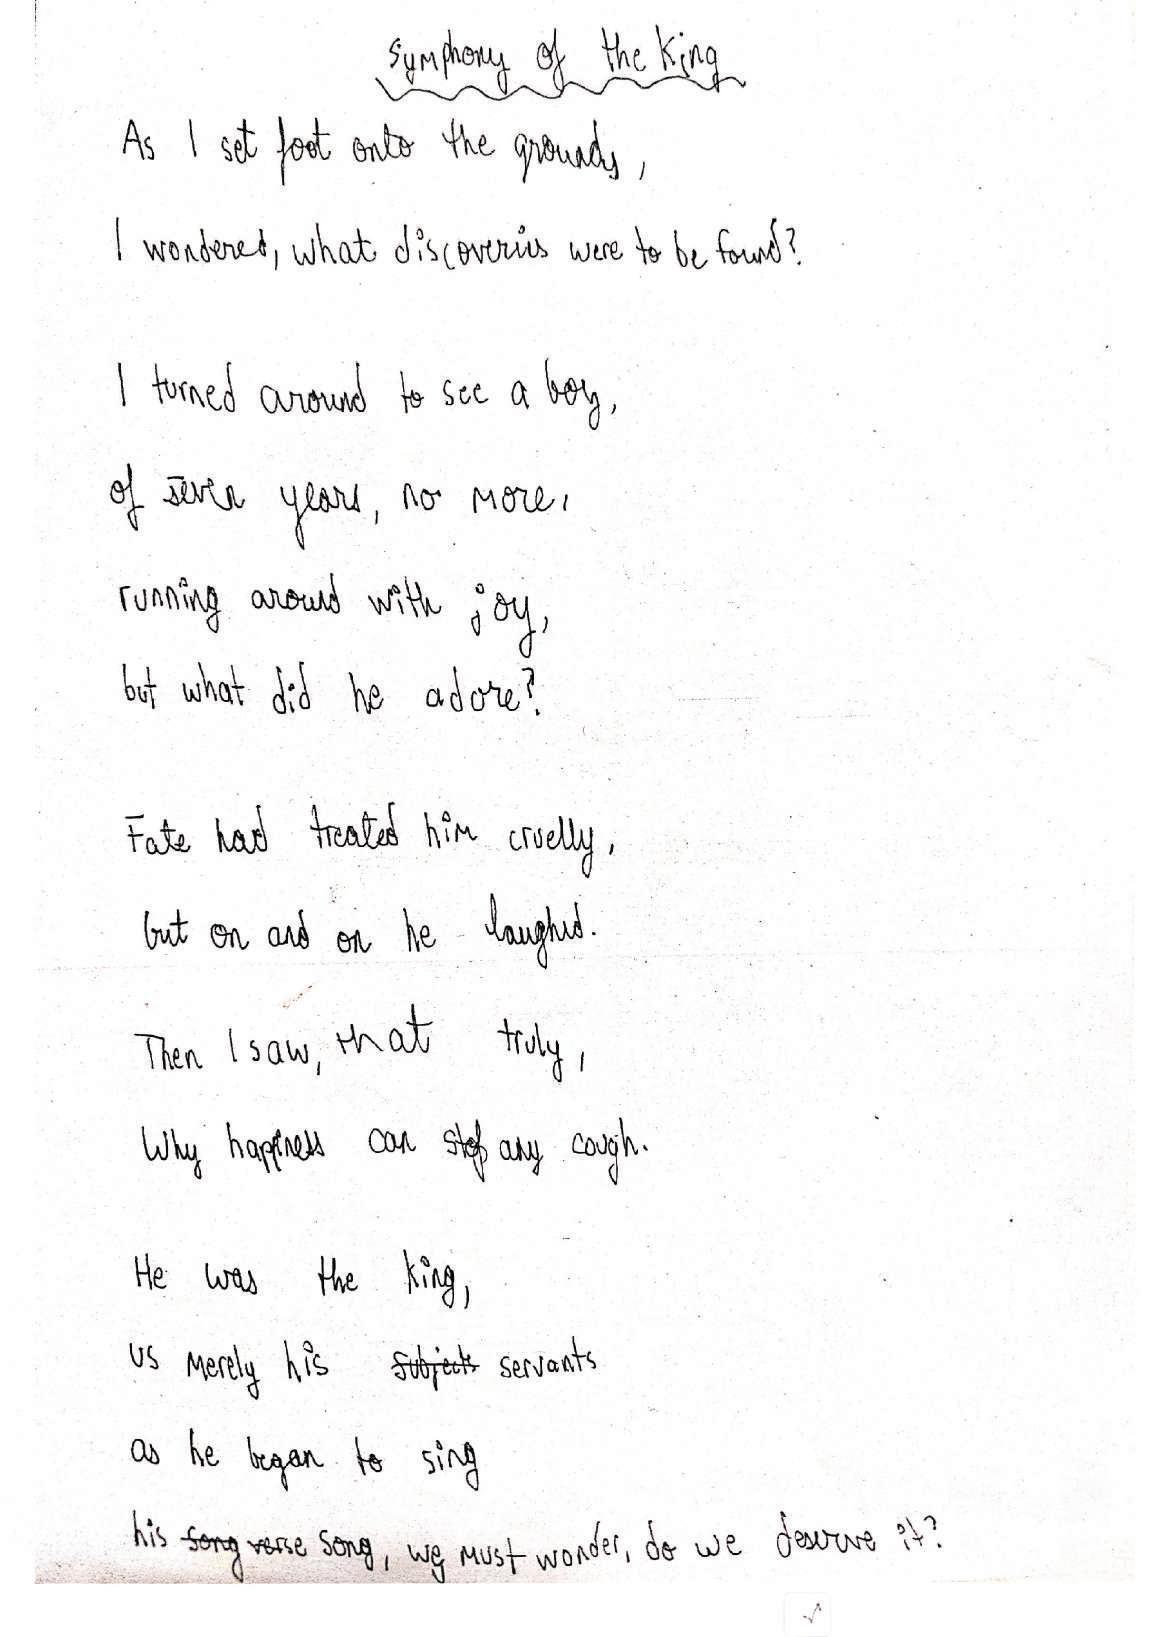 Symphony of the King
As I set foot onto the grounds,
I wondered, what discoveries were to be found?
I turned around to see a boy,
of seven years, no more.
running around with joy,
but what did he adore?
Fate had treated him cruelly,
but on and on he laughed.
Then I saw, that truly,
Why happiness can stop any cough.
He was the king,
us merely his subjects servants
as he began to sing
his song verse song, we must wonder, do we deserve it?